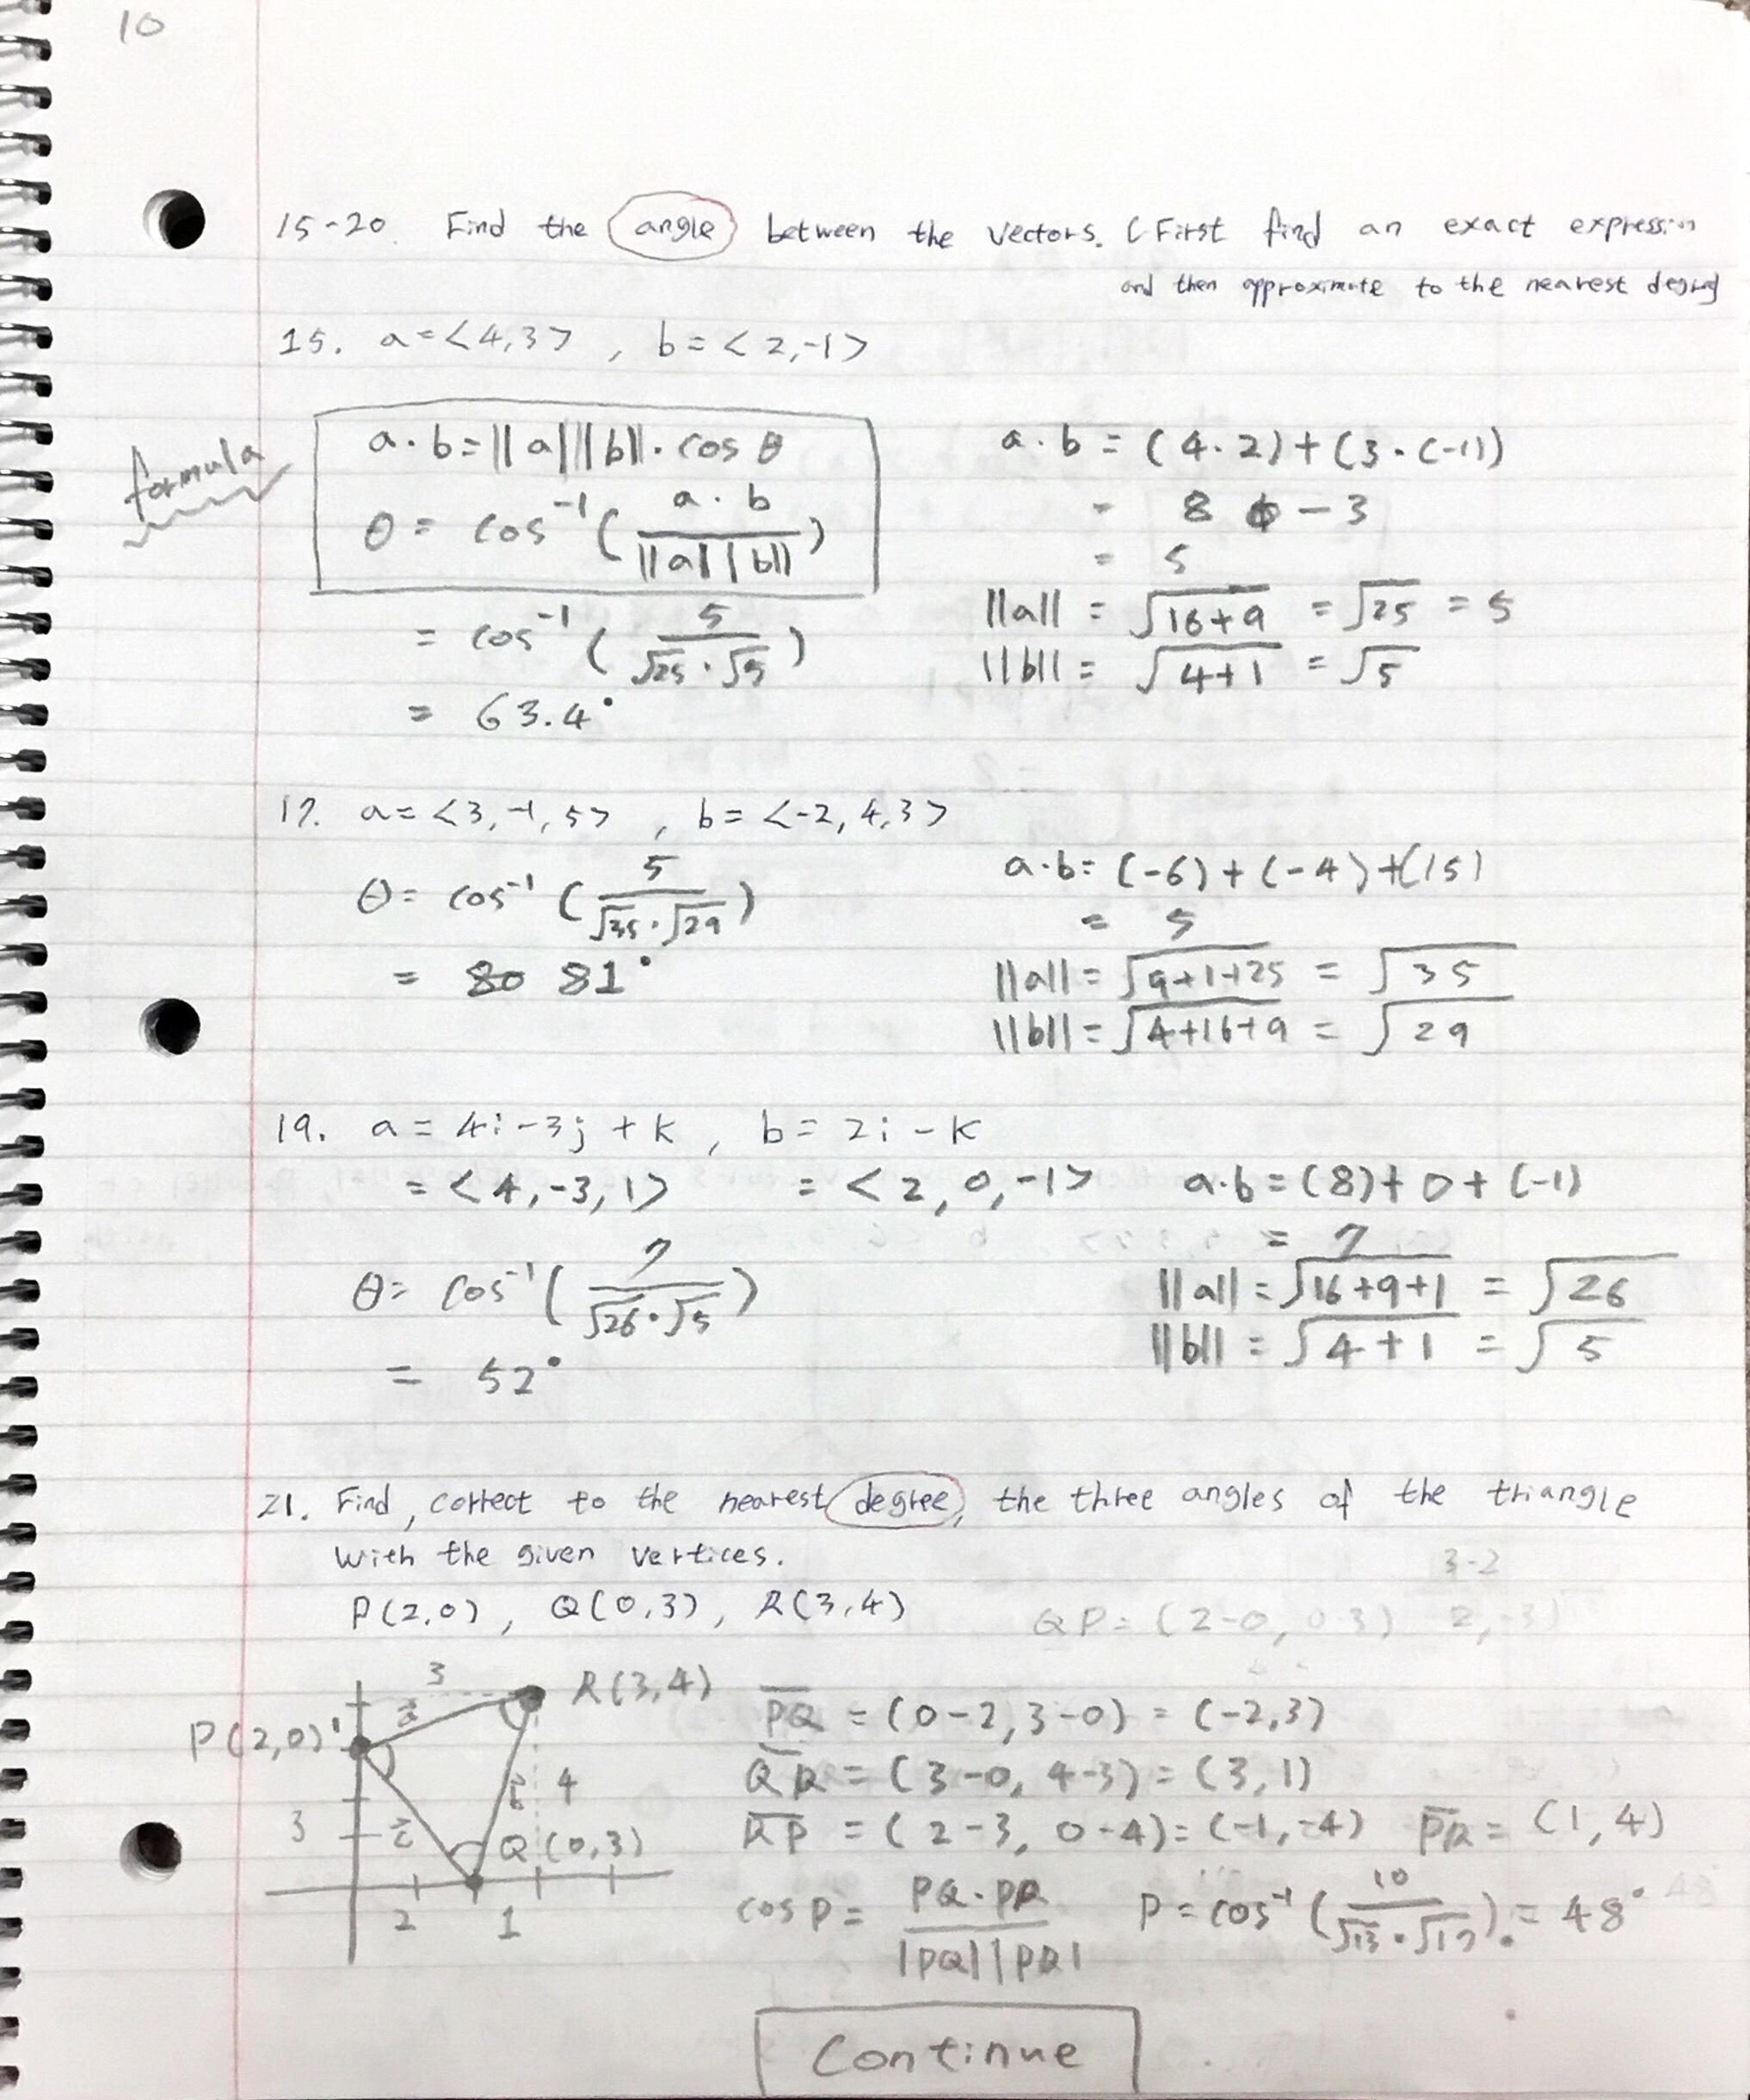 10
15-20. Find the angle between the vectors. (First find an exact expression
and then approximate to the nearest degree)
15. a=<4,3> , b=<2,-1>
formula
a·b=||a||||b||·cos θ
θ= cos⁻¹(a·b/||a|||b||)
= cos⁻¹(5/√25·√5)
= 63.4°
a·b = (4·2)+(3·(-1))
= 8 - 3
= 5
||a|| = √16+9 = √25 = 5
||b|| = √4+1 = √5
17. a=<3,-1,5> , b=<-2,4,3>
θ= cos⁻¹(5/√35·√29)
= 80 81°
a·b= (-6)+(-4)+(15)
= 5
||a||=√9+1+25 = √35
||b||=√4+16+9 = √29
19. a= 4i-3j+k, b= 2i-k
=<4,-3,1> =<2,0,-1>
a·b=(8)+0+(-1)
= 7
||a||=√16+9+1 = √26
||b|| = √4+1 = √5
θ= cos⁻¹(7/√26·√5)
= 52°
21. Find, correct to the nearest degree, the three angles of the triangle
with the given vertices.
3-2
P(2,0), Q(0,3), R(3,4)
QP=(2-0, 0-3) 2,-3)
3
R(3,4)
P(2,0)
4
3
Q(0,3)
2 1
PQ = (0-2, 3-0) = (-2,3)
QR = (3-0, 4-3) = (3,1)
RP = (2-3, 0-4)=(-1,-4) PR=(1,4)
cos P= PQ·PR/|PQ||PR| P=cos⁻¹(10/√13·√17).= 48°
Continue